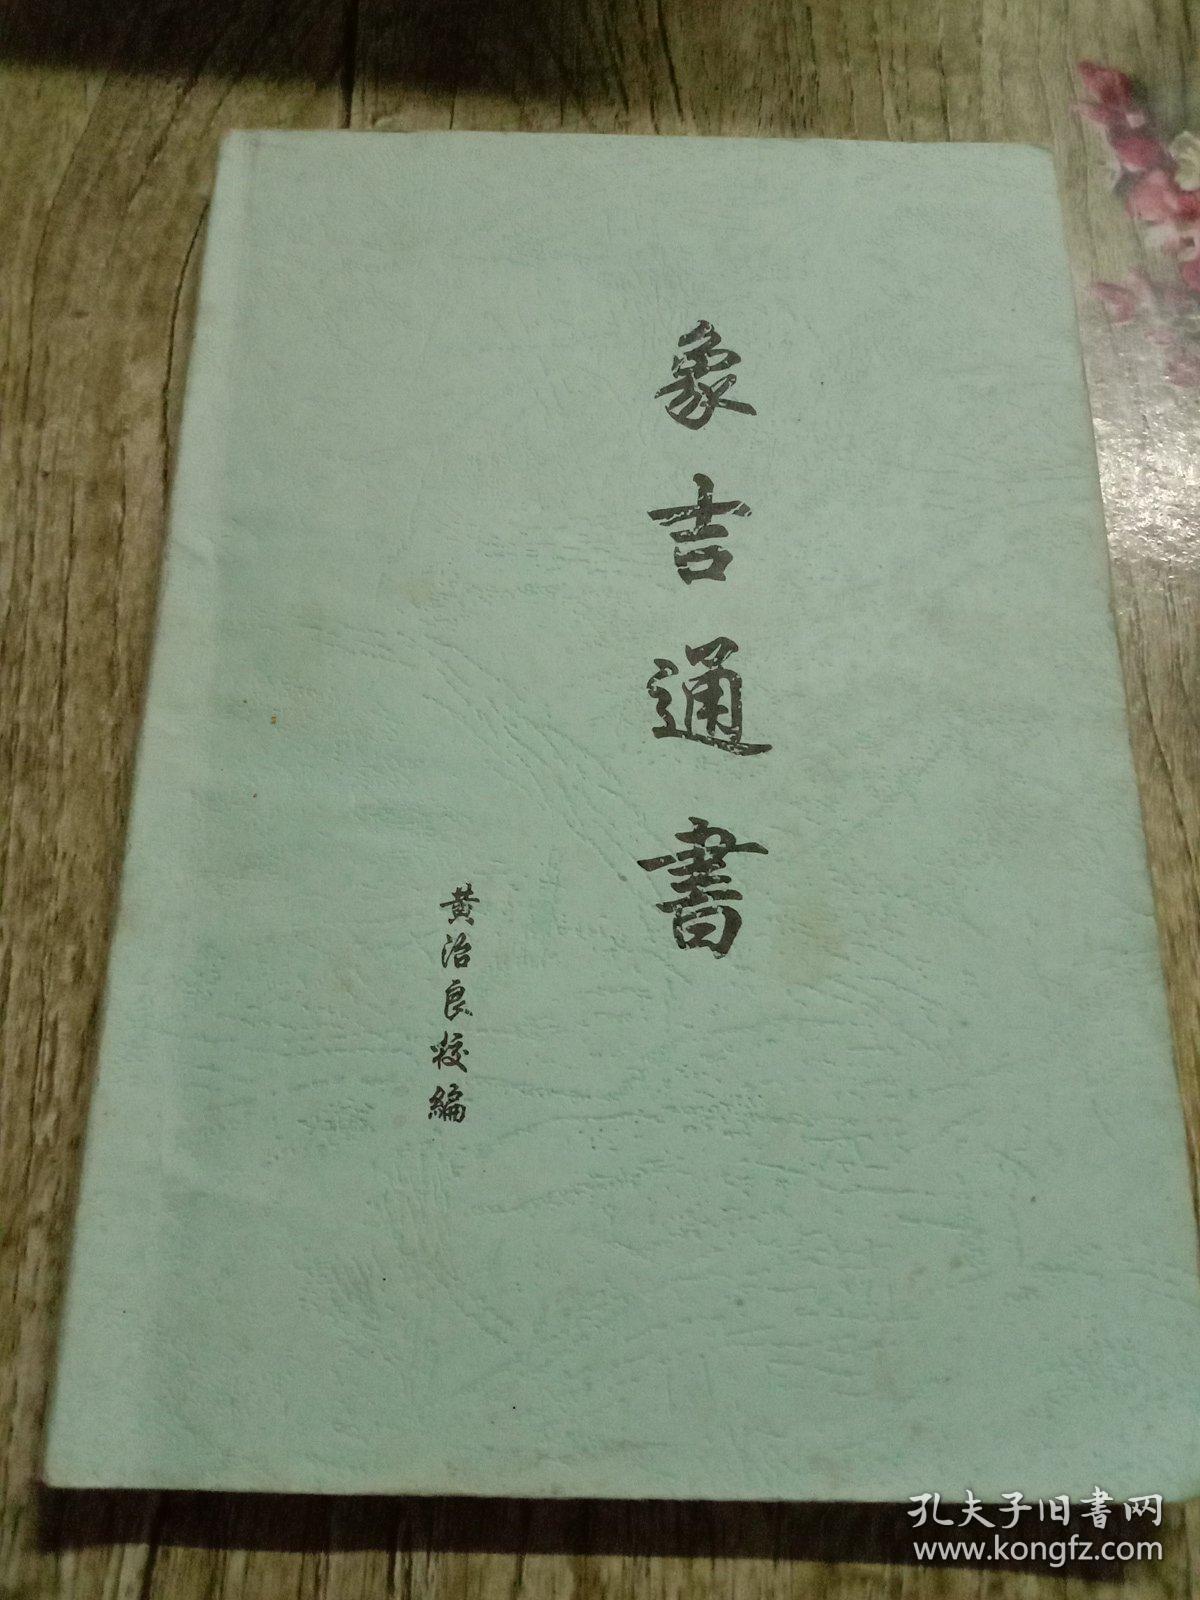 象吉通書
黄治良校編
孔夫子旧书网
www.kongfz.com